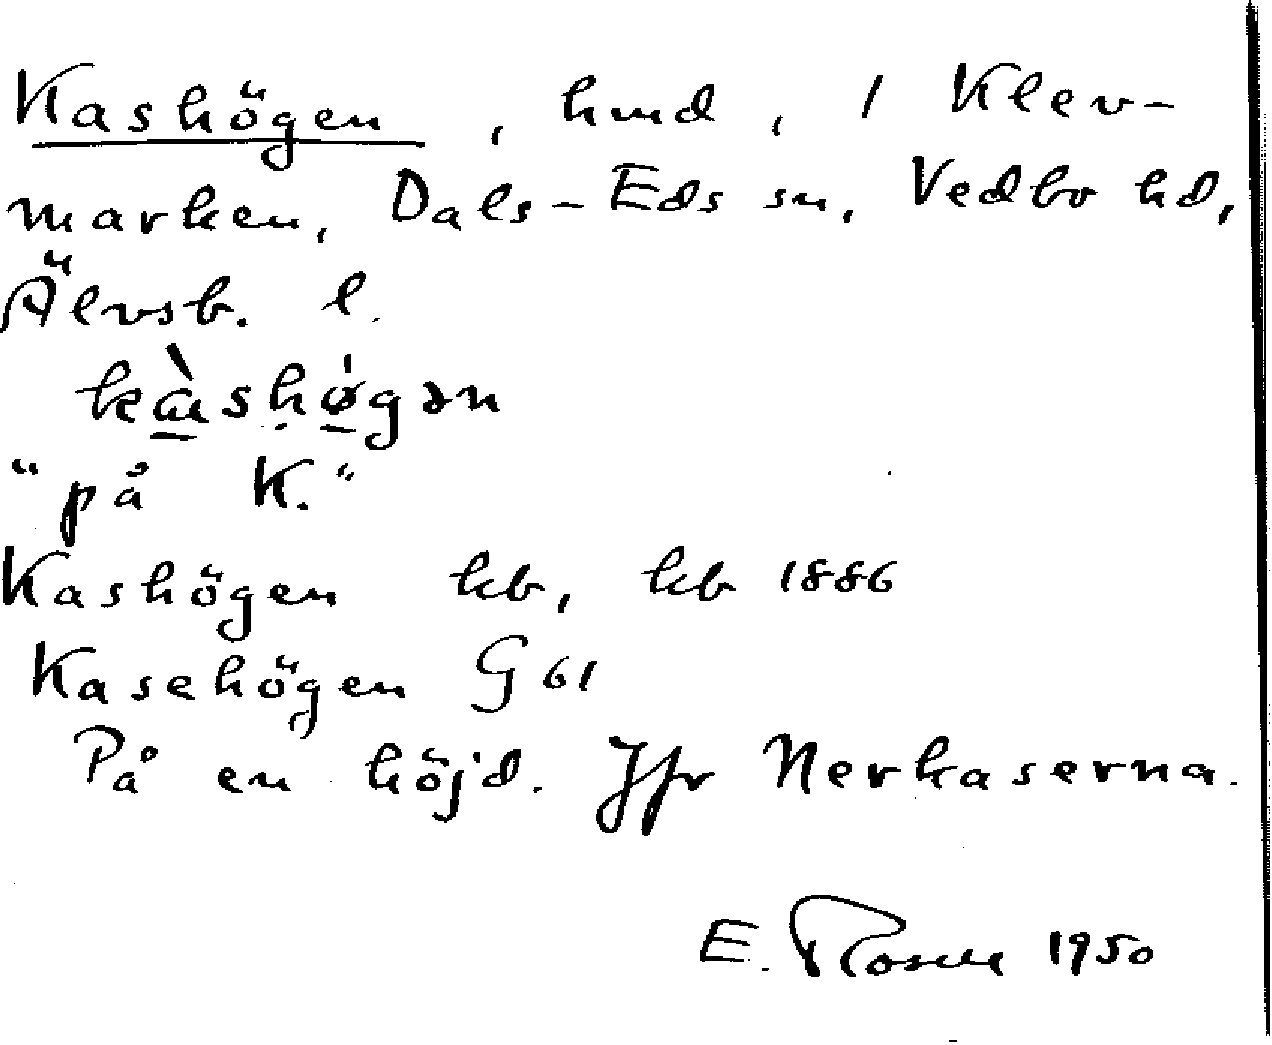 Kashögen, hmd, 1 Klev-
marken, Dals-Eds sn, Vedbo hd,
Älvsb. l.
kàshǿgən
"på K."
Kashögen kb, kb 1886
Kasehögen G 61
På en höjd. Jfr Nerkaserna.
E. Rosell 1950